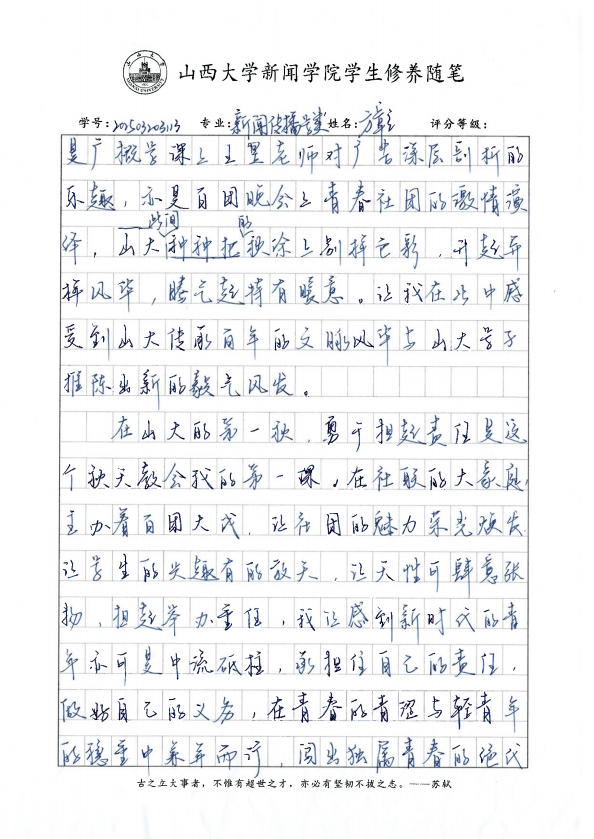 山西大学新闻学院学生修养随笔
学号:202503203113 专业:新闻传播学类 姓名: 评分等级:
是广概学课上王墨老师对广告深层剖析的
乐趣，亦是百团晚会上青春社团的激情演
此间 的
绎，山大种种把秋涂上别样色彩，升起弄
样风华，腾气起特有暖意。让我在此中感
受到山大传承百年的文脉风华与山大学子
推陈出新的毅气风发。
在山大的第一秋，勇于担起责任是这
个秋天教会我的第一课。在社联的大家庭，
主办着百团大战，让社团的魅力荣光焕发
让学生的兴趣有的放矢，让天性可肆意张
扬，担起举办重任，我让感到新时代的青
年亦可是中流砥柱，承担住自己的责任，
做好自己的义务，在青春的青涩与轻青年
的稳重中兼年而行，闯出独属青春的绝代
古之立大事者，不惟有超世之才，亦必有坚韧不拔之志。——苏轼